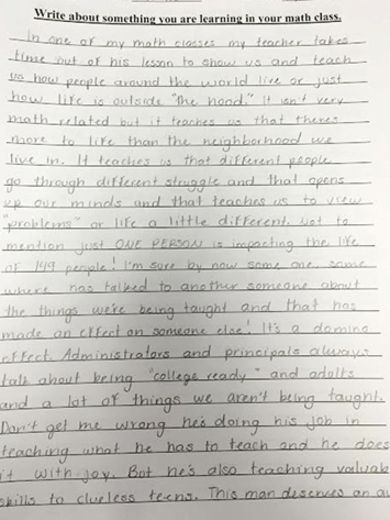 Write about something you are learning in your math class.
In one of my math classes my teacher takes
time out of his lesson to show us and teach
us how people around the world live or just
how life is outside "the hood." It isn't very
math related but it teaches us that theres
more to life than the neighborhood we
live in. It teaches us that different people
go through different struggle and that opens
up our minds and that teaches us to view
"problems" or life a little different. Not to
mention just ONE PERSON is impacting the life
of 149 people! I'm sure by now some one some
where has talked to another someone about
the things we're being taught and that has
made an effect on someone else! It's a domino
effect. Administrators and principals always
talk about being "college ready" and adults
and a lot of things we aren't being taught.
Don't get me wrong he's doing his job in
teaching what he has to teach and he does
it with joy. But he's also teaching valuab
skills to clueless teens. This man deserves an a